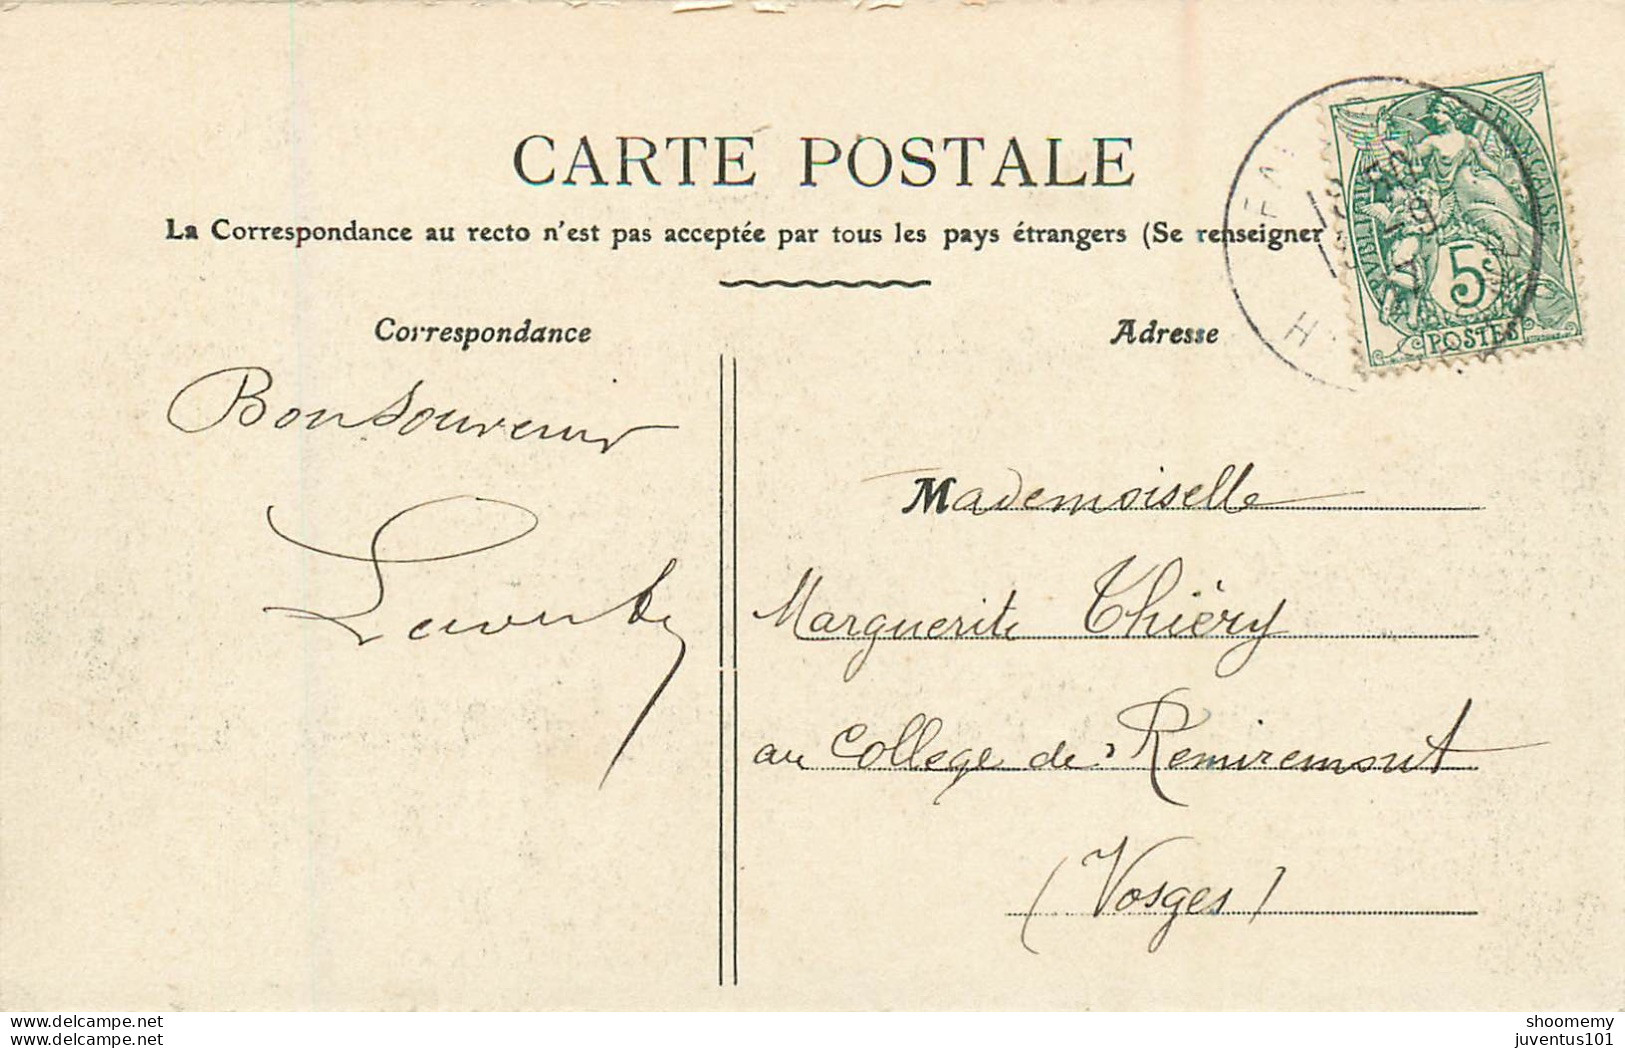 CARTE POSTALE
La Correspondance au recto n'est pas acceptée par tous les pays étrangers (Se renseigner
Correspondance
Adresse
RÉPUBLIQUE FRANÇAISE
5c
POSTES
Bon Souvenir
Mademoiselle
Marguerite Thiéry
au College de Remiremont
(Vosges)
www.delcampe.net
shoomemy
juventus101